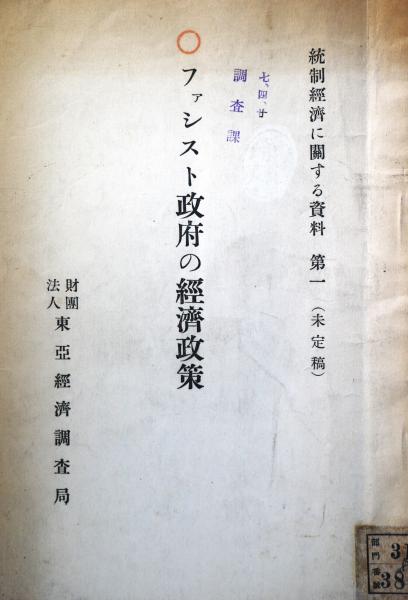 統制經濟に關する資料 第一 (未定稿)
七、四、廿
調査課
○ファシスト政府の經濟政策
財團
法人
東亞經濟調査局
部門 31
番號 38